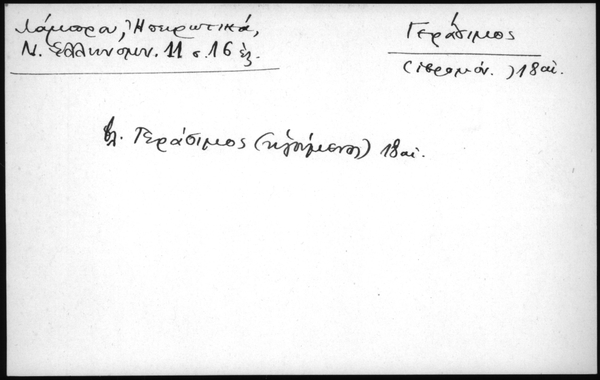 Λάμπρου, Ἠπειρωτικά,
Ν. Ἑλληνομν. 11 σ. 16 ἑξ.
Γεράσιμος
(ἱερομόν.) 18 αἰ.
βλ. Γεράσιμος (ἡγούμενος) 18 αἰ.